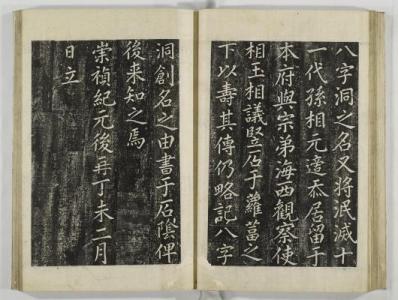 八字洞之名又將泯滅十
一代孫相元適忝居留于
本府與宗弟海西觀察使
相玉相議竪石于蘿葍之
下以壽其傳仍略記八字
洞創名之由書于石陰俾
後来知之焉
崇禎紀元後再丁未二月
日立